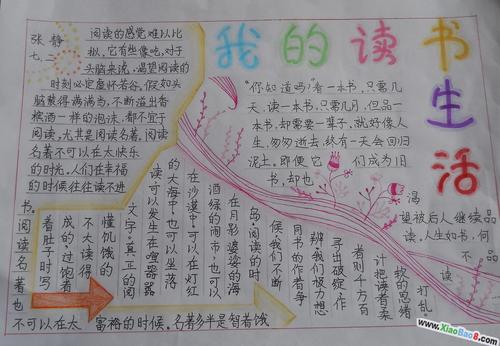 我的读书生活
张静
七.二
阅读的感觉难以比
拟,它有些像吃,对于
头脑来说,渴望阅读的
时刻必定虚怀若谷,假如头
脑装得满满当,不断溢出香
槟酒一样的泡沫,都不宜于
阅读,尤其是阅读名著,阅读
名著不可以在太快乐
的时光,人们在幸福
的时候往往读不进
书。
阅读名著也
不可以在太富裕的时候,名著多半是智着饿
着肚子时写
成的,过饱者
不大读得
懂饥饿的
文字,真正的阅
读可以发生在喧嚣
的大海中,也可以坐落
在沙漠中,可以在灯红
酒绿的闹市,也可以
在月影婆娑的海
岛,阅读的时
候,我们不断
同书的作者争
辨,我们极力想
寻出破绽,作
者则千方百
计把读者柔
软的思绪
打乱
“你知道吗?”看一本书,只需几
天,读一本书,只需几月,但品一
本书,却需要一辈子,就好像人
生,匆匆逝去,终有一天会回归
泥土。即便它们成为旧
书,却也渴
望被后人继续品
读,人生如书,何
不品
读
www.XiaoBao8.com